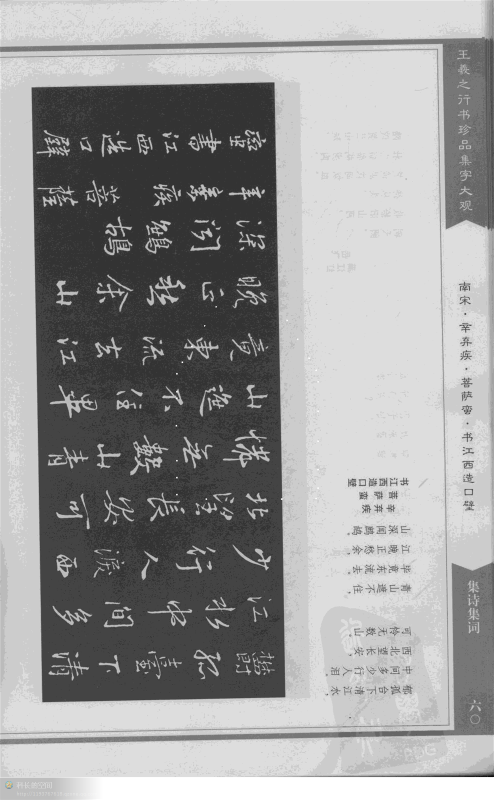 王羲之行书珍品集字大观
南宋·辛弃疾·菩萨蛮·书江西造口壁
集诗集词
六〇
鬱孤臺下清
江水中間多
少行人淚西
北望長安可
憐无數山青
山遮不住畢
竟東流去江
晚正愁余山
深聞鷓鴣
辛棄疾菩薩
蠻書江西造口壁
郁孤台下清江水，
中间多少行人泪。
西北望长安，
可怜无数山。
青山遮不住，
毕竟东流去。
江晚正愁余，
山深闻鹧鸪。
辛弃疾
菩萨蛮
书江西造口壁